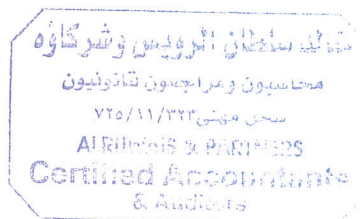 سلطان الرويس وشركاؤه
محاسبون ومراجعون قانونيون
سجل مهني ٧٢٥/١١/٣٢٣
& PARTNERS
Certified Accountants
& Auditors